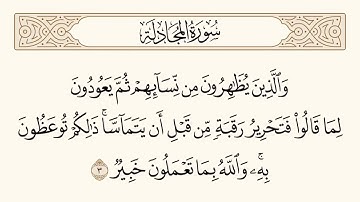 سُورَةُ المُجَادلَة
وَٱلَّذِينَ يُظَٰهِرُونَ مِن نِّسَآئِهِمۡ ثُمَّ يَعُودُونَ
لِمَا قَالُواْ فَتَحۡرِيرُ رَقَبَةٖ مِّن قَبۡلِ أَن يَتَمَآسَّاۚ ذَٰلِكُمۡ تُوعَظُونَ
بِهِۦۚ وَٱللَّهُ بِمَا تَعۡمَلُونَ خَبِيرٞ ٣